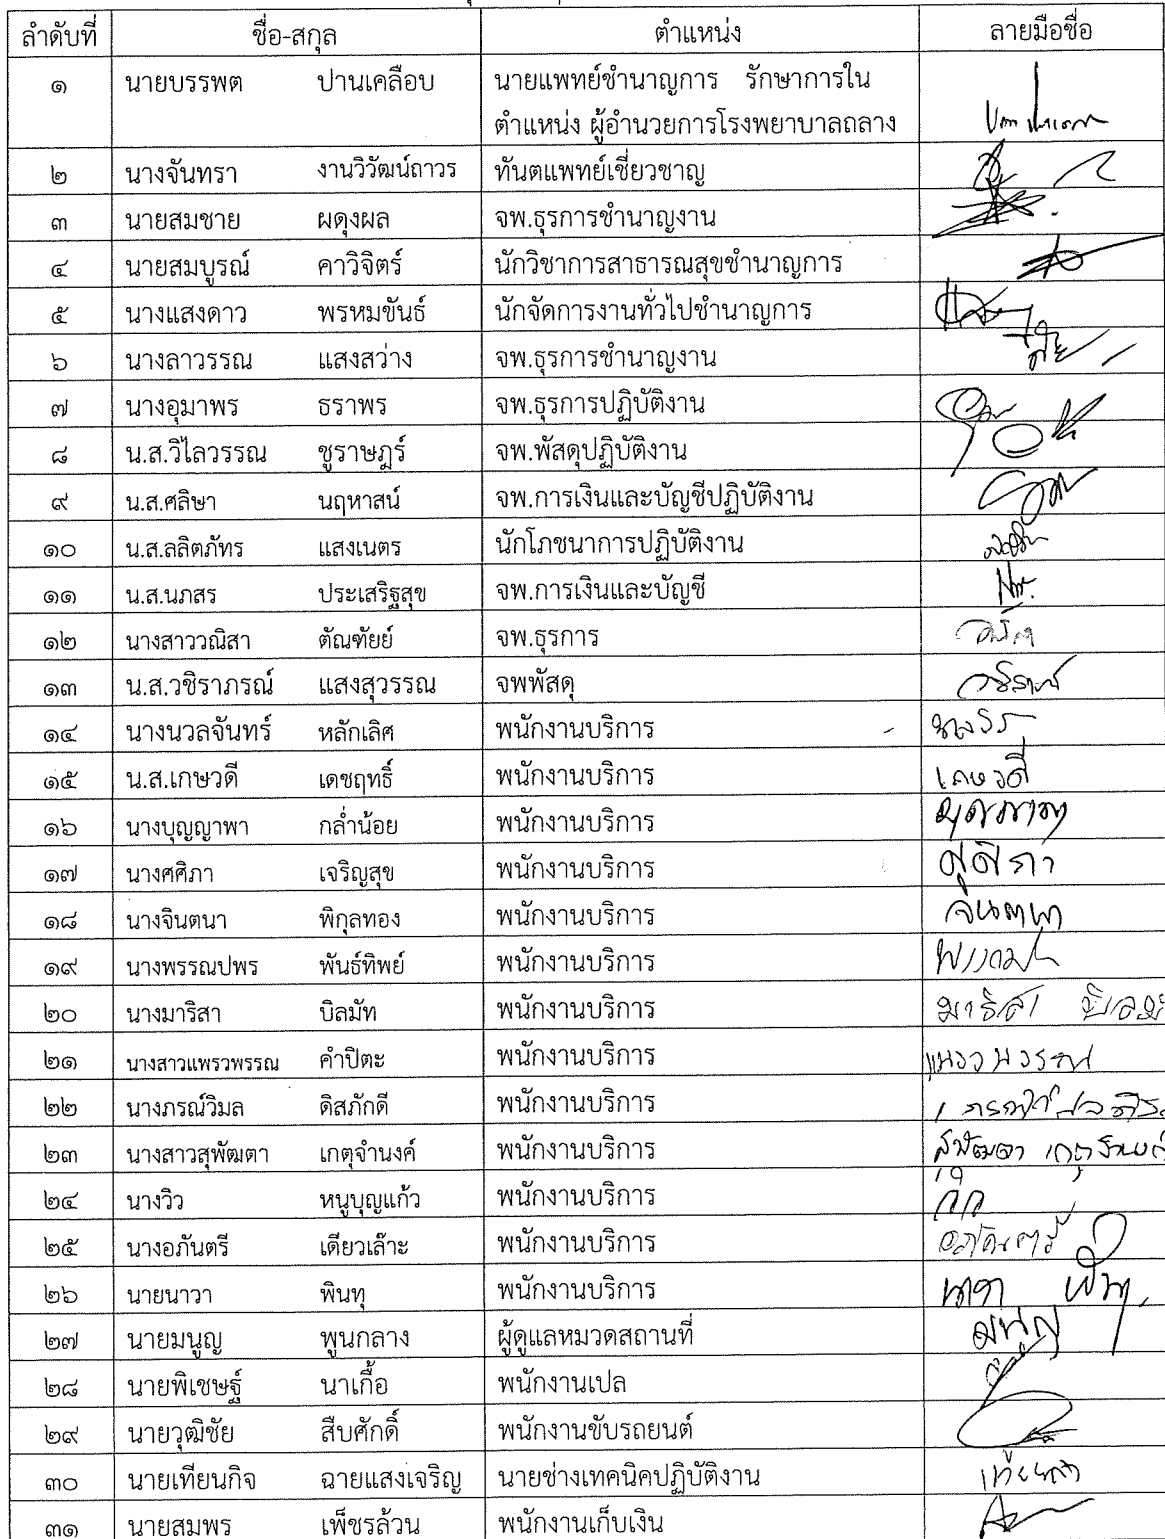 ลำดับที่ ชื่อ-สกุล ตำแหน่ง ลายมือชื่อ
๑ นายบรรพต ปานเคลือบ นายแพทย์ชำนาญการ รักษาการใน
ตำแหน่ง ผู้อำนวยการโรงพยาบาลถลาง
๒ นางจันทรา งานวิวัฒน์ถาวร ทันตแพทย์เชี่ยวชาญ
๓ นายสมชาย ผดุงผล จพ.ธุรการชำนาญงาน
๔ นายสมบูรณ์ คาวิจิตร์ นักวิชาการสาธารณสุขชำนาญการ
๕ นางแสงดาว พรหมขันธ์ นักจัดการงานทั่วไปชำนาญการ
๖ นางลาวรรณ แสงสว่าง จพ.ธุรการชำนาญงาน
๗ นางอุมาพร ธราพร จพ.ธุรการปฏิบัติงาน
๘ น.ส.วิไลวรรณ ชูราษฎร์ จพ.พัสดุปฏิบัติงาน
๙ น.ส.ศลิษา นฤหาสน์ จพ.การเงินและบัญชีปฏิบัติงาน
๑๐ น.ส.ลลิตภัทร แสงเนตร นักโภชนาการปฏิบัติงาน
๑๑ น.ส.นภสร ประเสริฐสุข จพ.การเงินและบัญชี
๑๒ นางสาววณิสา ตัณฑัยย์ จพ.ธุรการ
๑๓ น.ส.วชิราภรณ์ แสงสุวรรณ จพพัสดุ
๑๔ นางนวลจันทร์ หลักเลิศ พนักงานบริการ
๑๕ น.ส.เกษวดี เดชฤทธิ์ พนักงานบริการ เกษวดี
๑๖ นางบุญญาพา กล่ำน้อย พนักงานบริการ
๑๗ นางศศิภา เจริญสุข พนักงานบริการ ศศิภา
๑๘ นางจินตนา พิกุลทอง พนักงานบริการ จินตนา
๑๙ นางพรรณปพร พันธ์ทิพย์ พนักงานบริการ
๒๐ นางมาริสา บิลมัท พนักงานบริการ มาริสา
๒๑ นางสาวแพรวพรรณ คำปิตะ พนักงานบริการ แพรวพรรณ
๒๒ นางภรณ์วิมล ดิสภักดี พนักงานบริการ
๒๓ นางสาวสุพัฒตา เกตุจำนงค์ พนักงานบริการ สุพัฒตา เกตุจำนงค์
๒๔ นางวิว หนูบุญแก้ว พนักงานบริการ
๒๕ นางอภันตรี เดียวเล๊าะ พนักงานบริการ อภันตรี
๒๖ นายนาวา พินทุ พนักงานบริการ นาวา พินทุ
๒๗ นายมนูญ พูนกลาง ผู้ดูแลหมวดสถานที่ มนูญ
๒๘ นายพิเชษฐ์ นาเกื้อ พนักงานเปล
๒๙ นายวุฒิชัย สืบศักดิ์ พนักงานขับรถยนต์
๓๐ นายเทียนกิจ ฉายแสงเจริญ นายช่างเทคนิคปฏิบัติงาน
๓๑ นายสมพร เพ็ชรล้วน พนักงานเก็บเงิน